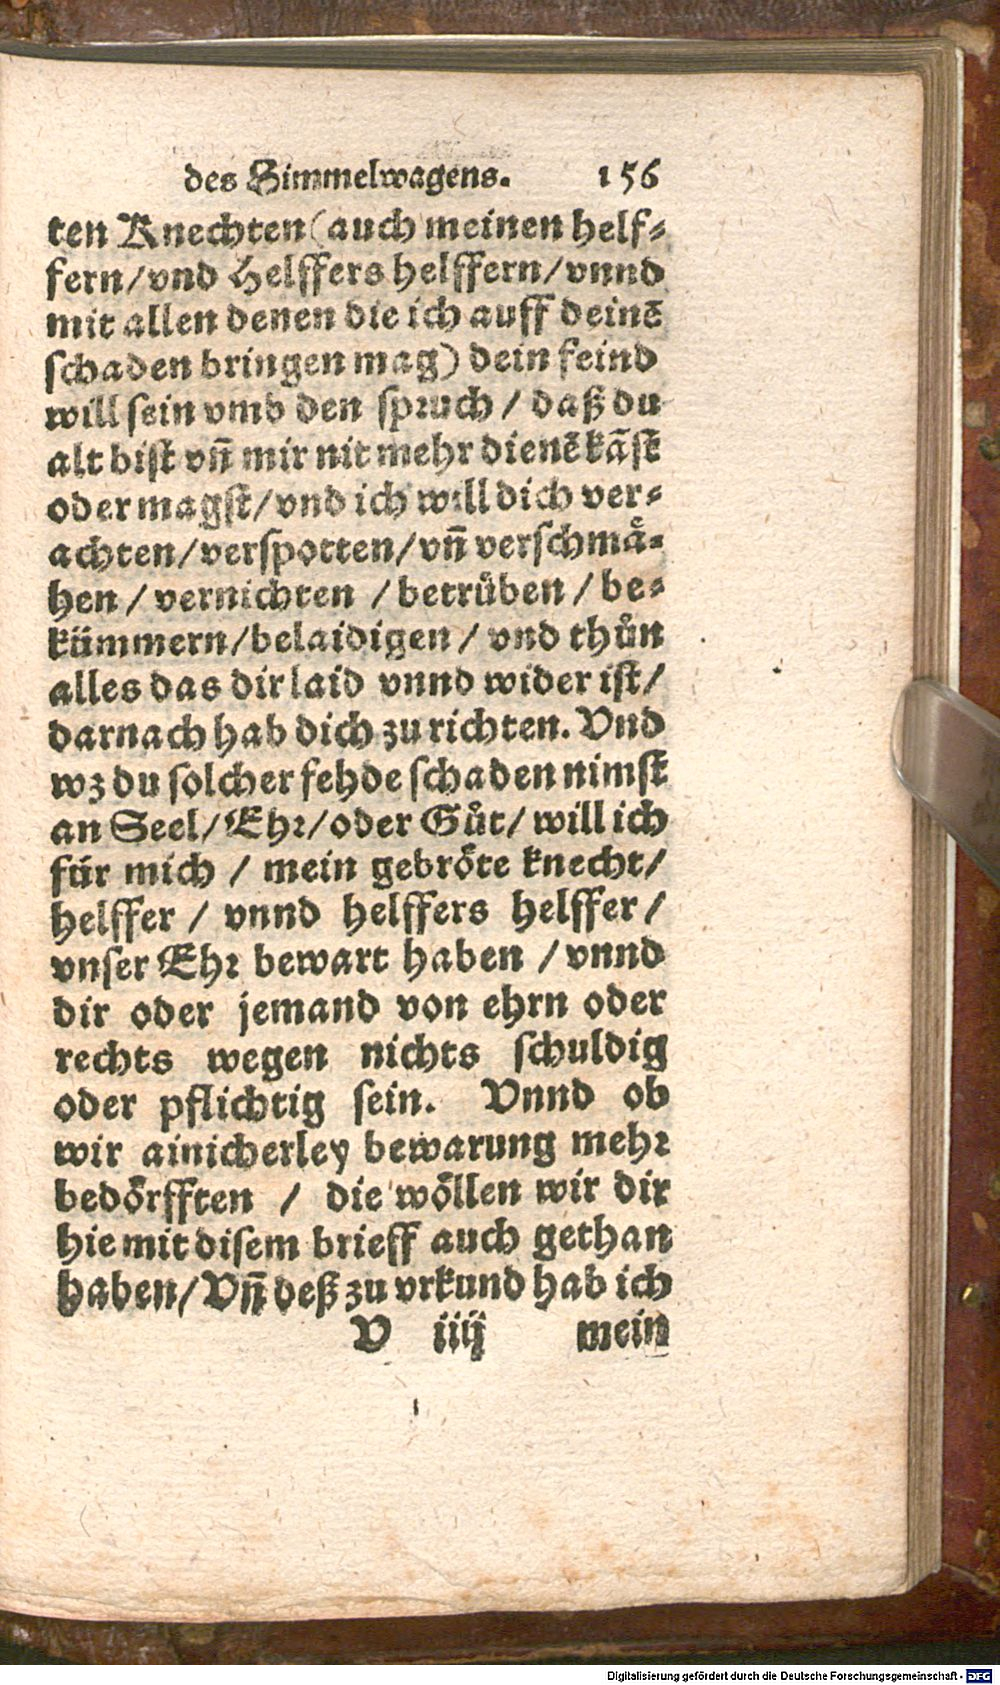 des Himmelwagens. 156
ten Knechten (auch meinen helf-
fern/vnd Helffers helffern/vnnd
mit allen denen die ich auff deinē
schaden bringen mag) dein feind
will sein vmb den spruch / daß du
alt bist vn̄ mir nit mehr dienē kāst
oder magst/vnd ich will dich ver-
achten/verspotten/vn̄ verschmaͤ-
hen / vernichten / betruͤben / be-
kümmern/belaidigen / vnd thuͦn
alles das dir laid vnnd wider ist/
darnach hab dich zu richten. Vnd
wz du solcher fehde schaden nimst
an Seel/Ehr/oder Guͦt/will ich
für mich / mein gebroͤte knecht/
helffer / vnnd helffers helffer/
vnser Ehr bewart haben /vnnd
dir oder jemand von ehrn oder
rechts wegen nichts schuldig
oder pflichtig sein. Vnnd ob
wir ainicherley bewarung mehr
bedoͤrfften / die woͤllen wir dir
hie mit disem brieff auch gethan
haben/Vn̄ deß zu vrkund hab ich
V iiij mein
Digitalisierung gefördert durch die Deutsche Forschungsgemeinschaft - DFG